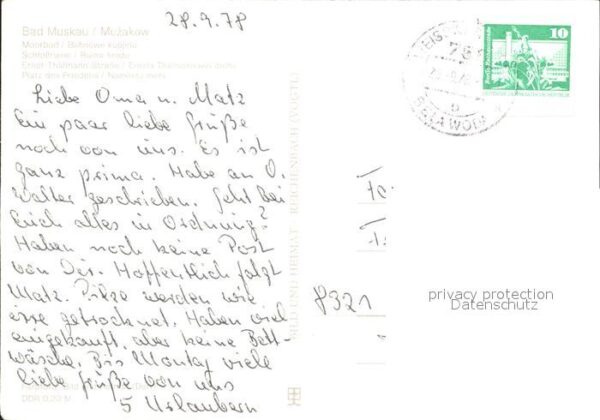 28.9.78
Bad Muskau / Mužakow
Moorbad / Bahnowe kupjele
Schloßruine / Ruina hrodu
Ernst-Thälmann-Straße / Ernsta Thälmannowa dróha
Platz des Friedens / Naměsto měra
Liebe Oma u. Matz
Ein paar liebe Grüße
noch von uns. Es ist
ganz prima. Habe an O.
Walter geschrieben. Geht bei
Euch alles in Ordnung?
Haben noch keine Post
von Dir. Hoffentlich folgt
Matz. Pilze werden wie
irre getrocknet. Haben viel
eingekauft, aber keine Bett-
wäsche. Bis Montag viele
liebe Grüße von uns
5 Urlaubern
DDR 0,20 M
BILD UND HEIMAT REICHENBACH (VOGTL)
10
DEUTSCHE DEMOKRATISCHE REPUBLIK
8321
privacy protection
Datenschutz